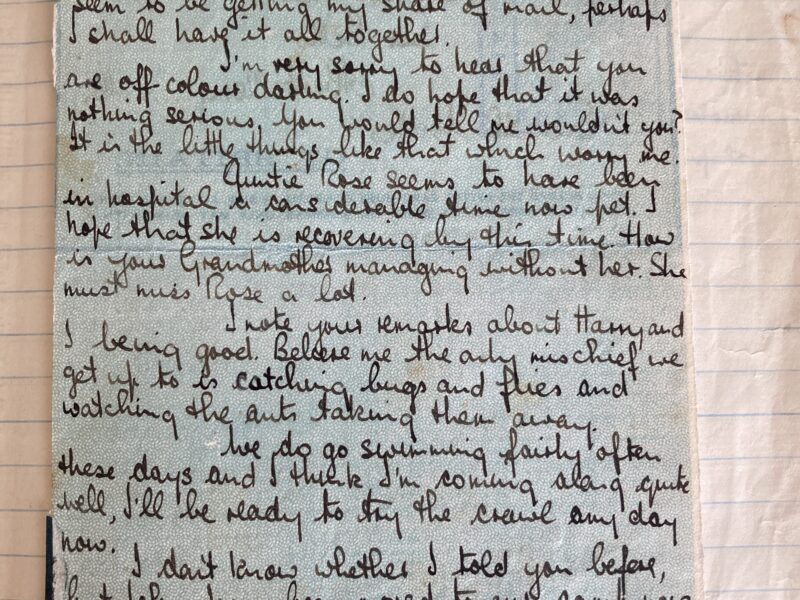 seem to be getting my share of mail, perhaps
I shall have it all together.
I'm very sorry to hear that you
are off colour darling. I do hope that it was
nothing serious. You would tell me wouldn't you?
It is the little things like that which worry me.
Auntie Rose seems to have been
in hospital a considerable time now pet. I
hope that she is recovering by this time. How
is your Grandmother managing without her. She
must miss Rose a lot.
I note your remarks about Harry and
I being good. Believe me the only mischief we
get up to is catching bugs and flies and
watching the ants taking them away.
We do go swimming fairly often
these days and I think I'm coming along quite
well, I'll be ready to try the crawl any day
now.
I don't know whether I told you before,